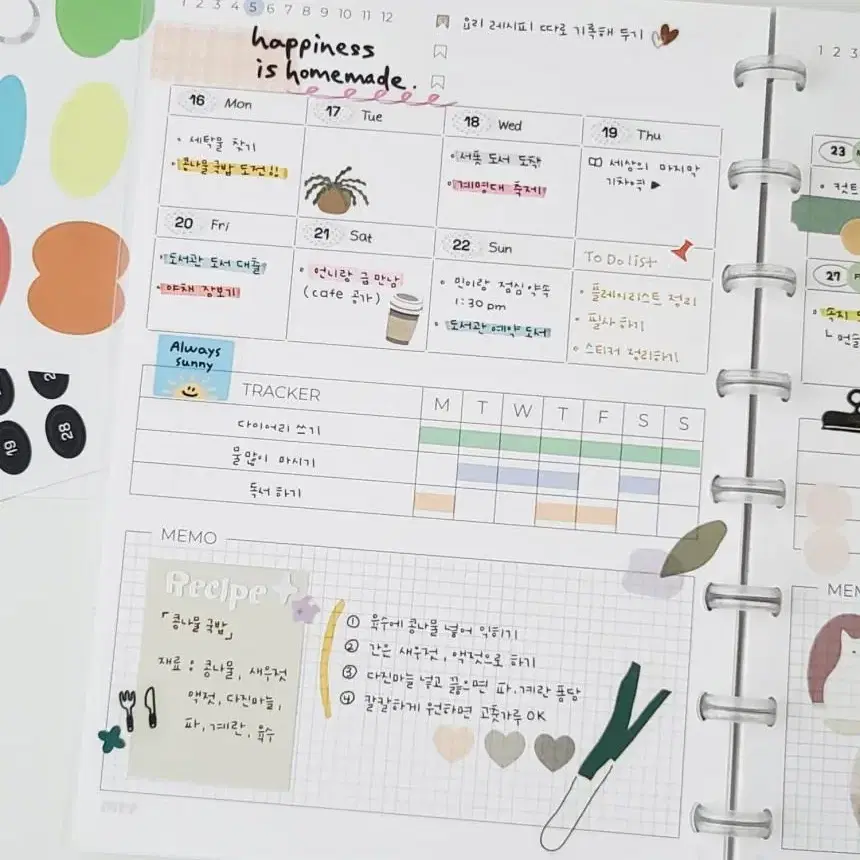 1 2 3 4 5 6 7 8 9 10 11 12
요리 레시피 따로 기록해 두기
happiness
is homemade.
16 Mon
• 세탁물 찾기
• 콩나물국밥 도전!!
17 Tue
18 Wed
• 서평 도서 도착
• 계명대 축제!
19 Thu
세상의 마지막
기차역 ▶
20 Fri
• 도서관 도서 대출
• 야채 장보기
21 Sat
• 언니랑 급 만남
(cafe 공가)
22 Sun
• 민이랑 점심 약속
1:30 pm
• 도서관 예약 도서
To Do list
• 플레이리스트 정리
• 필사 하기
• 스티커 정리하기
Always
sunny
TRACKER M T W T F S S
다이어리 쓰기
물 많이 마시기
독서 하기
MEMO
Recipe
「콩나물 국밥」
재료 : 콩나물, 새우젓
액젓, 다진마늘,
파, 계란, 육수
① 육수에 콩나물 넣어 익히기
② 간은 새우젓, 액젓으로 하기
③ 다진마늘 넣고 끓으면 파, 계란 퐁당
④ 칼칼하게 원하면 고춧가루 OK
1 2 3
23
• 컷트
27
19
28